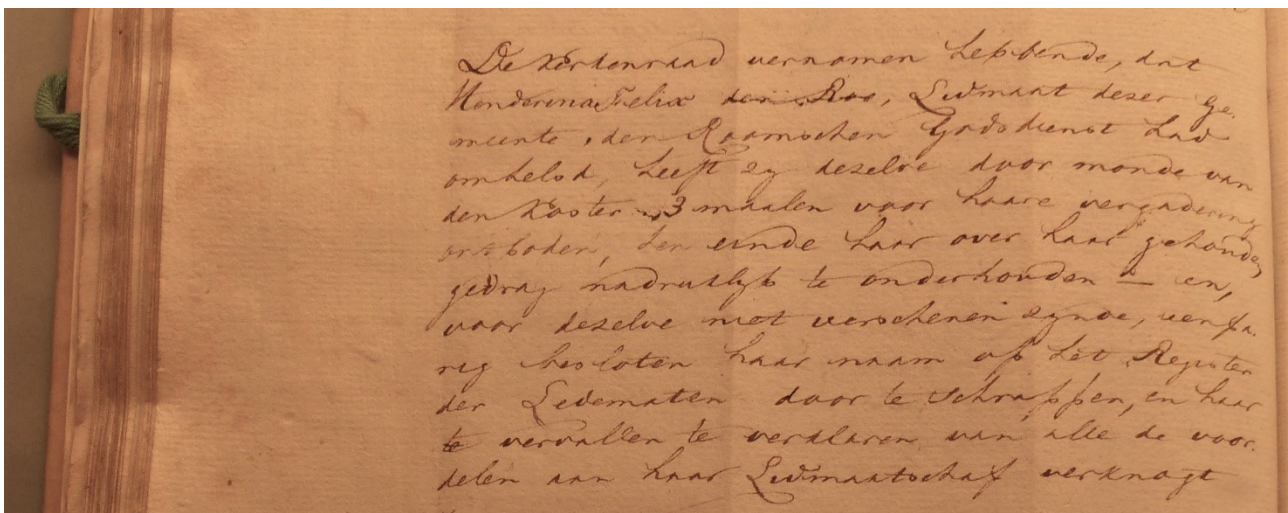 De Kerkenraad vernomen hebbende, dat
Henderina Felix den Roo, Lidmaat dezer ge-
meente, den Roomschen Godsdienst had
omhelsd, heeft zy dezelve door monde van
den Koster 3 maalen voor haare vergadering
ontboden, ten einde haar over haar gehouden
gedrag nadruklyk te onderhouden – en,
voor dezelve niet verschenen zynde, eenpa-
rig besloten haar naam op het Register
der Ledematen door te schrappen, en haar
te vervallen te verklaren van alle de voor-
delen aan haar Lidmaatschap verknogt